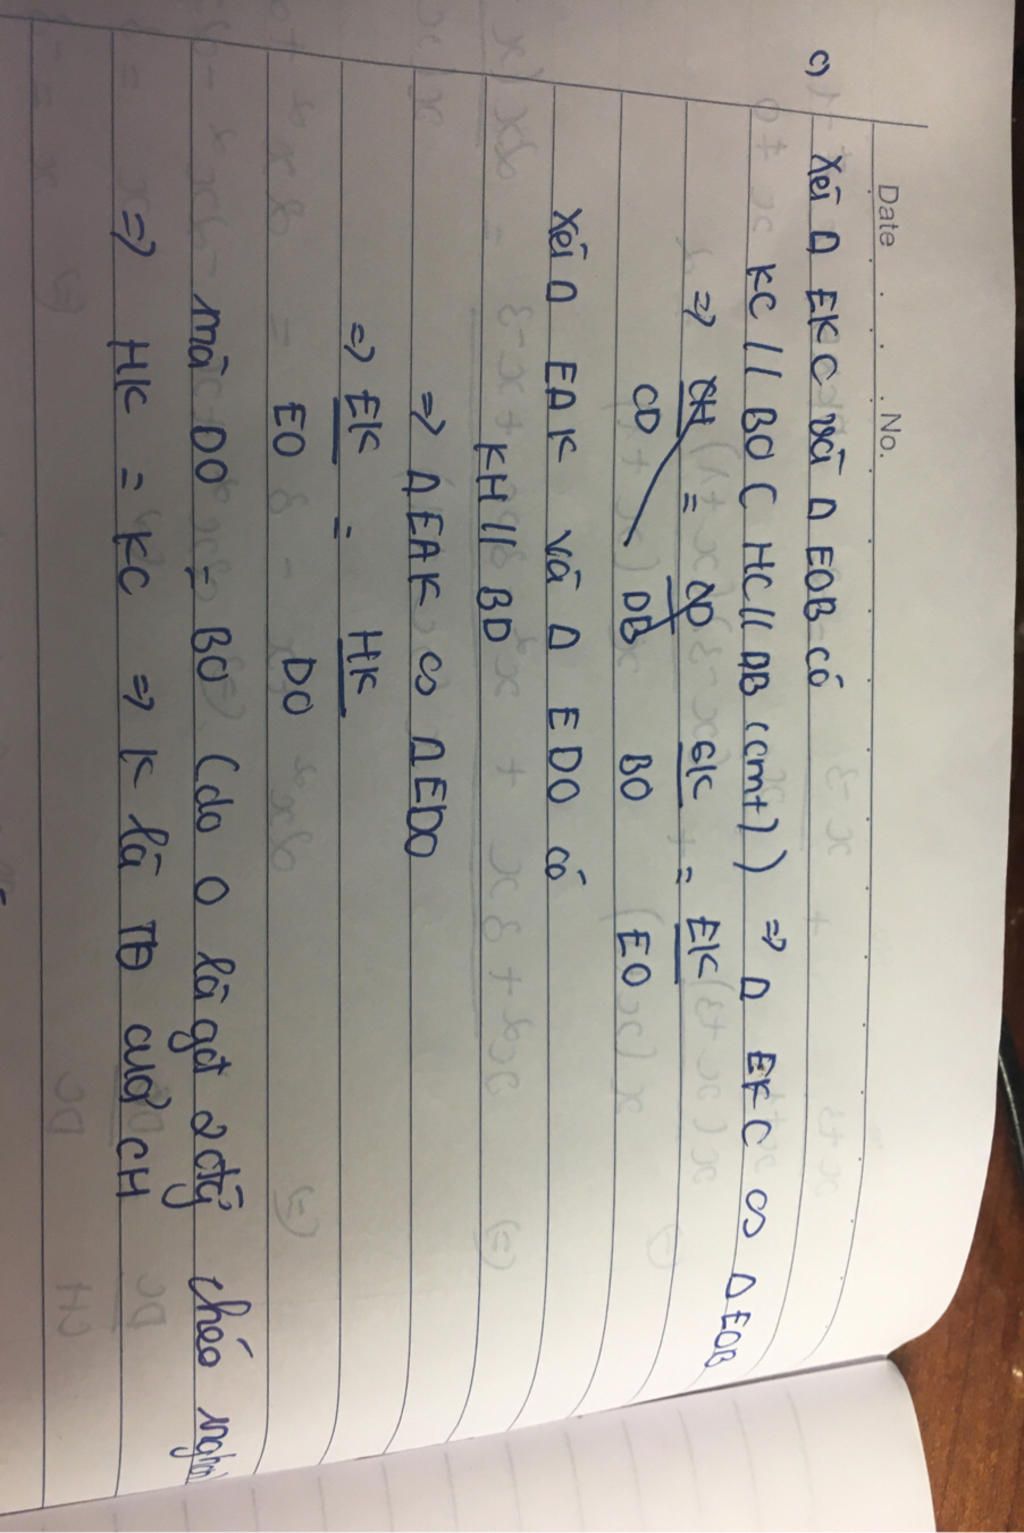 Date No.
c) Xét Δ EKC và Δ EOB có
KC // BO ( HC // DB (cmt)) ⇒ Δ EKC ∽ Δ EOB
⇒ = CK = EK
BO EO
Xét Δ EAK và Δ EDO có
KH // BD
⇒ Δ EAK ∽ Δ EDO
⇒ EK = HK
EO DO
mà DO = BO (do O là gđ 2 đg chéo
⇒ HK = KC ⇒ K là TĐ của CH